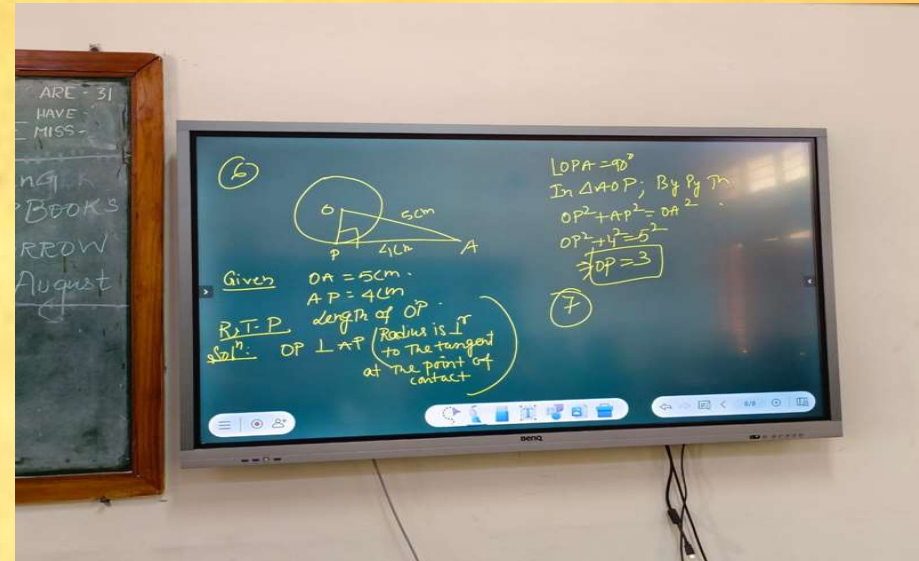 ARE - 31
HAVE -
MISS -
BOOKS
RROW
August
6
O
5cm
P
4cm
A
Given OA = 5cm.
AP = 4cm
R.T.P. Length of OP.
Solⁿ: OP ⊥ AP (Radius is ⊥r
to The tangent
at The point of
contact)
∠OPA = 90°
In △AOP; By Py Th.
OP² + AP² = OA²
OP² + 4² = 5²
⇒ OP = 3
7
8/8
BenQ